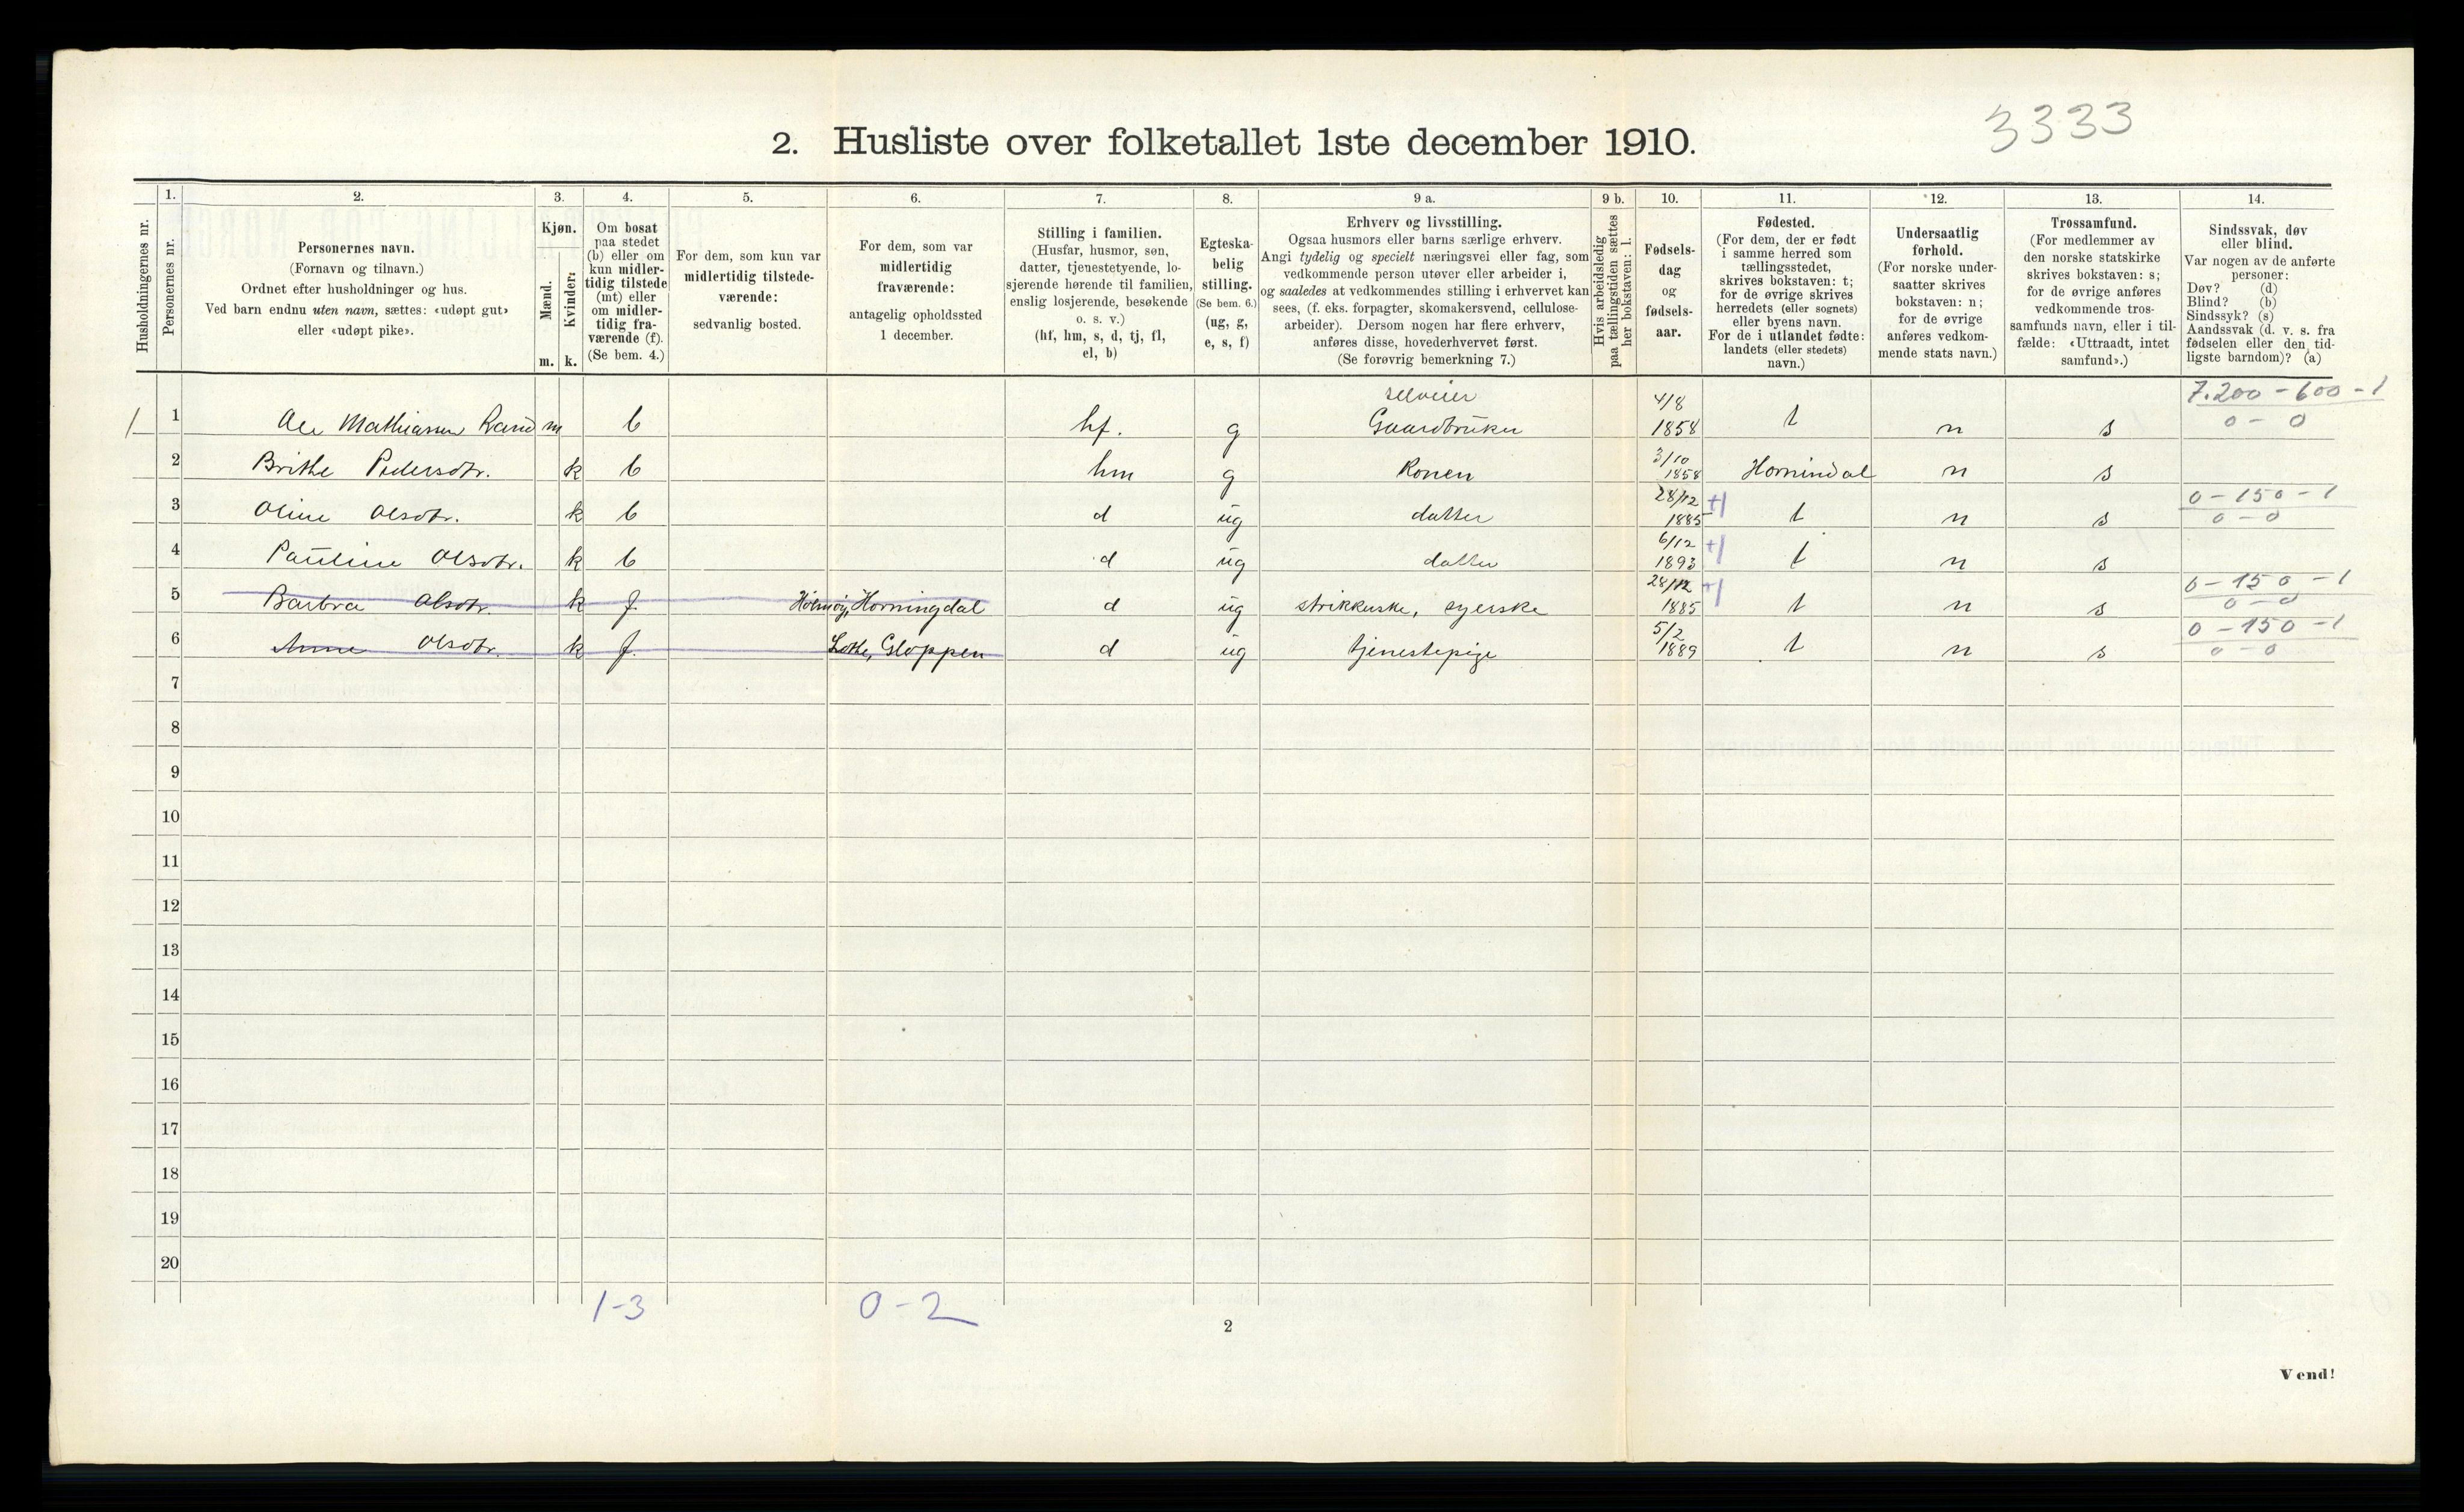 3333
2. Husliste over folketallet 1ste december 1910.
Husholdningernes nr.
1.
Personernes nr.
2.
Personernes navn.
(Fornavn og tilnavn.)
Ordnet efter husholdninger og hus.
Ved barn endnu uten navn, sættes: «udøpt gut»
eller «udøpt pike».
3.
Kjøn.
Mænd.
Kvinder.
m. k.
4.
Om bosat
paa stedet
(b) eller om
kun midler-
tidig tilstede
(mt) eller
om midler-
tidig fra-
værende (f).
(Se bem. 4.)
5.
For dem, som kun var
midlertidig tilstede-
værende:
sedvanlig bosted.
6.
For dem, som var
midlertidig
fraværende:
antagelig opholdssted
1 december.
7.
Stilling i familien.
(Husfar, husmor, søn,
datter, tjenestetyende, lo-
sjerende hørende til familien,
enslig losjerende, besøkende
o. s. v.)
(hf, hm, s, d, tj, fl,
el, b)
8.
Egteska-
belig
stilling.
(Se bem. 6.)
(ug, g,
e, s, f)
9 a.
Erhverv og livsstilling.
Ogsaa husmors eller barns særlige erhverv.
Angi tydelig og specielt næringsvei eller fag, som
vedkommende person utøver eller arbeider i,
og saaledes at vedkommendes stilling i erhvervet kan
sees, (f. eks. forpagter, skomakersvend, cellulose-
arbeider). Dersom nogen har flere erhverv,
anføres disse, hovederhvervet først.
(Se forøvrig bemerkning 7.)
9 b.
Hvis arbeidsledig
paa tællingstiden sættes
her bokstaven: l.
10.
Fødsels-
dag
og
fødsels-
aar.
11.
Fødested.
(For dem, der er født
i samme herred som
tællingsstedet,
skrives bokstaven: t;
for de øvrige skrives
herredets (eller sognets)
eller byens navn.
For de i utlandet fødte:
landets (eller stedets)
navn.)
12.
Undersaatlig
forhold.
(For norske under-
saatter skrives
bokstaven: n;
for de øvrige
anføres vedkom-
mende stats navn.)
13.
Trossamfund.
(For medlemmer av
den norske statskirke
skrives bokstaven: s;
for de øvrige anføres
vedkommende tros-
samfunds navn, eller i til-
fælde: «Uttraadt, intet
samfund».)
14.
Sindssvak, døv
eller blind.
Var nogen av de anførte
personer:
Døv? (d)
Blind? (b)
Sindssyk? (s)
Aandssvak (d. v. s. fra
fødselen eller den tid-
ligste barndom)? (a)
selveier 4/8 7.200 - 600 - 1
1 1 Ole Mathiassen m b hf. g Gaardbruker 1858 t n s 0 - 0
2 Brithe Pedersdtr. k b hm g Konen 3/10 1858 Hornindal n s
3 Oline Olsdtr. k b d ug datter 28/12 1885 t n s 0 - 150 - 1 0 - 0
4 Pauline Olsdtr. k b d ug datter 6/12 1893 t n s
5 Barbra Olsdtr. k f Holmøy, Horningdal d ug strikkerske, syerske 28/12 1885 t n s 0 - 150 - 1 0 - 0
6 Anne Olsdtr. k f Lothe, Gloppen d ug tjenestepige 5/2 1889 t n s 0 - 150 - 1 0 - 0
7
8
9
10
11
12
13
14
15
16
17
18
19
20
1-3 0-2
2
Vend!